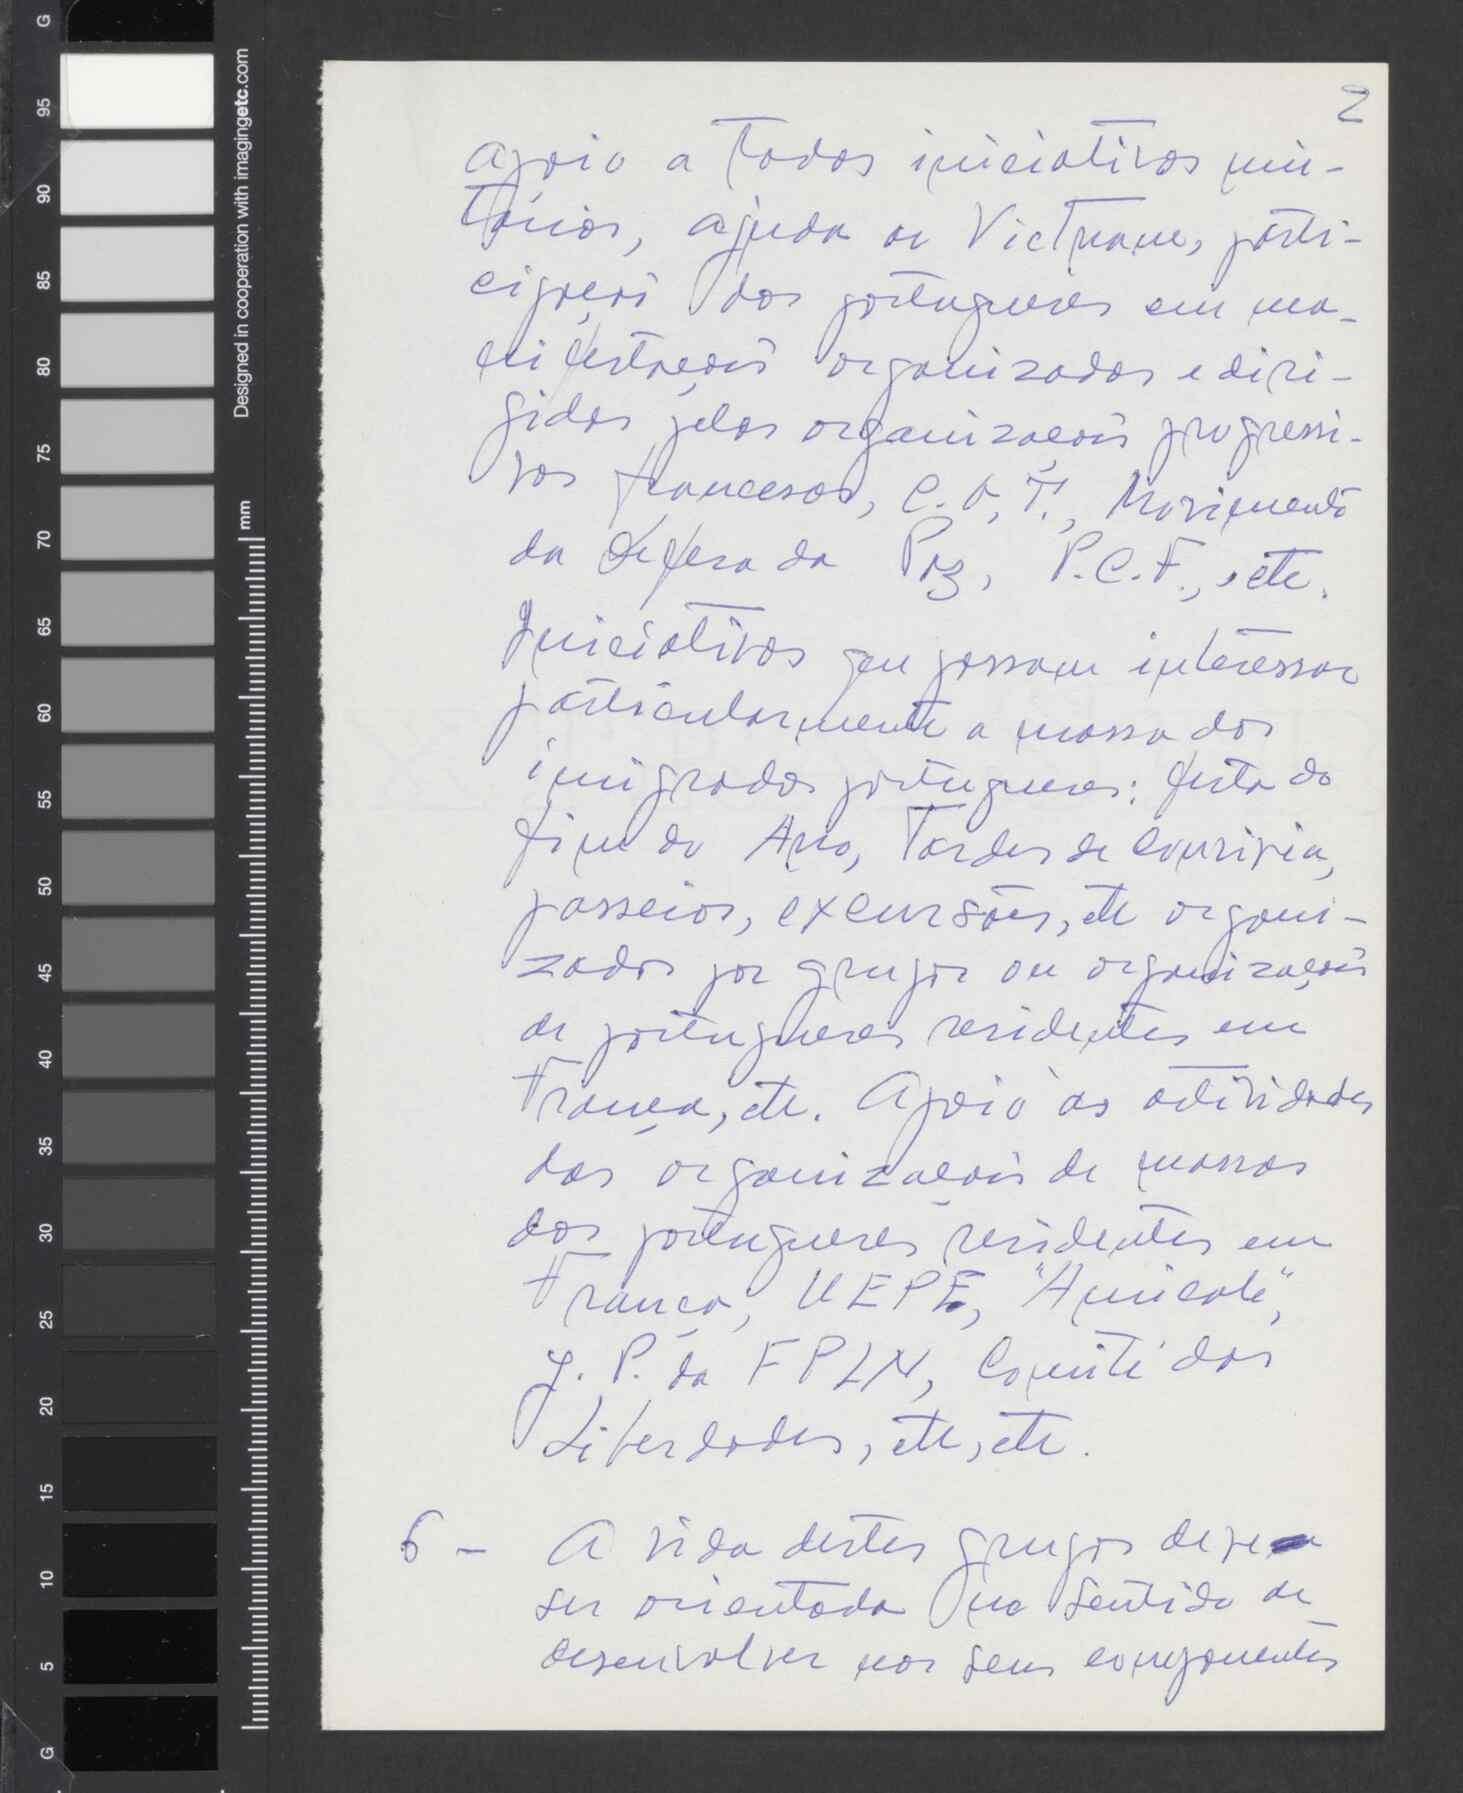 2
apoio a todas iniciativas uni-
tárias, ajuda ao Vietname, parti-
cipação dos portugueses em ma-
nifestações organizadas e diri-
gidas pelas organizações progressi-
vas francesas, C.G.T., Movimento
da defesa da Paz, P.C.F., etc.
Iniciativas que possam interessar
particularmente a massa dos
imigrados portugueses: festa do
fim do Ano, Tardes de convivia,
passeios, excursões, etc organi-
zados por grupos ou organizações
de portugueses residentes em
França, etc. Apoio às actividades
das organizações de massas
dos portugueses residentes em
França, UEPE, "Amicale",
J.P. da FPLN, Comité das
Liberdades, etc, etc.
6 - A vida destes grupos deve
ser orientada no sentido de
desenvolver nos seus componentes
G
95
90
85
80
75
70
65
60
55
50
45
40
35
30
25
20
15
10
5
G
Designed in cooperation with imagingetc.com
mm